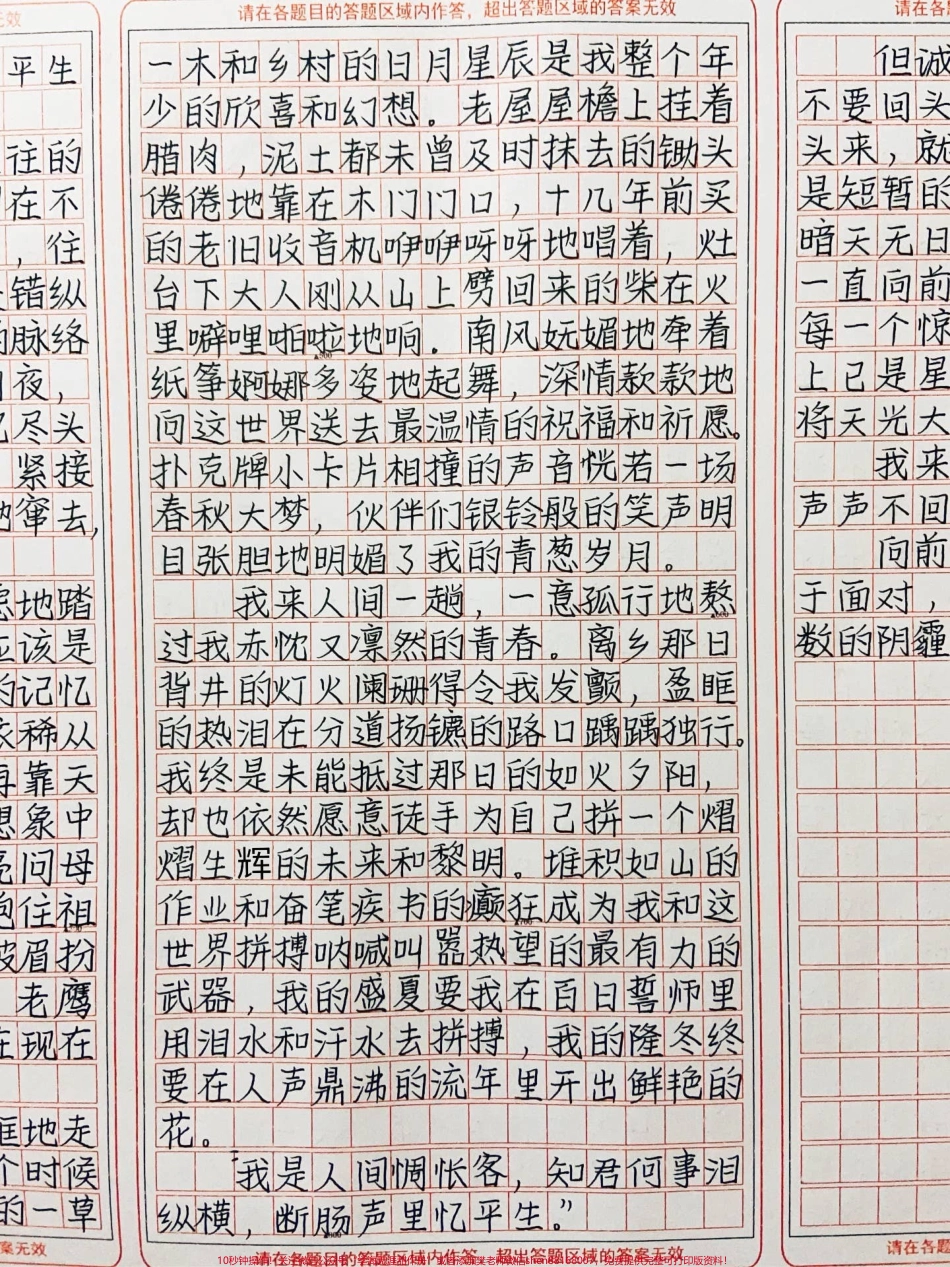 无效
平生
往的
在不
，住
错纵
脉络
夜，
尽头
紧接
窜去，
地踏
该是
记忆
稀从
靠天
象中
问母
住祖
眉扮
老鹰
现在
地走
时候
的一草
答案无效
请在各题目的答题区域内作答，超出答题区域的答案无效
一木和乡村的日月星辰是我整个年
少的欣喜和幻想。老屋屋檐上挂着
腊肉，泥土都未曾及时抹去的锄头
倦倦地靠在木门门口，十几年前买
的老旧收音机咿咿呀呀地唱着，灶
台下大人刚从山上劈回来的柴在火
里噼哩啪啦地响．南风妩媚地牵着
纸筝婀娜多姿地起舞，深情款款地
向这世界送去最温情的祝福和祈愿。
扑克牌小卡片相撞的声音恍若一场
春秋大梦，伙伴们银铃般的笑声明
目张胆地明媚了我的青葱岁月。
我来人间一趟，一意孤行地熬
过我赤忱又凛然的青春。离乡那日
背井的灯火阑珊得令我发颤，盈眶
的热泪在分道扬镳的路口踽踽独行。
我终是未能抵过那日的如火夕阳，
却也依然愿意徒手为自己拼一个熠
熠生辉的未来和黎明。堆积如山的
作业和奋笔疾书的癫狂成为我和这
世界拼搏呐喊叫嚣热望的最有力的
武器，我的盛夏要我在百日誓师里
用泪水和汗水去拼搏，我的隆冬终
要在人声鼎沸的流年里开出鲜艳的
花。
我是人间惆怅客，知君何事泪
纵横，断肠声里忆平生。”
请在各题目的答题区域内作答，超出答题区域的答案无效
请在各题
但诚
不要回头
头来，就
是短暂的
暗天无日
一直向前
每一个惊
上已是星
将天光大
我来
声声不回
向前
于面对，
数的阴霾
请在各题